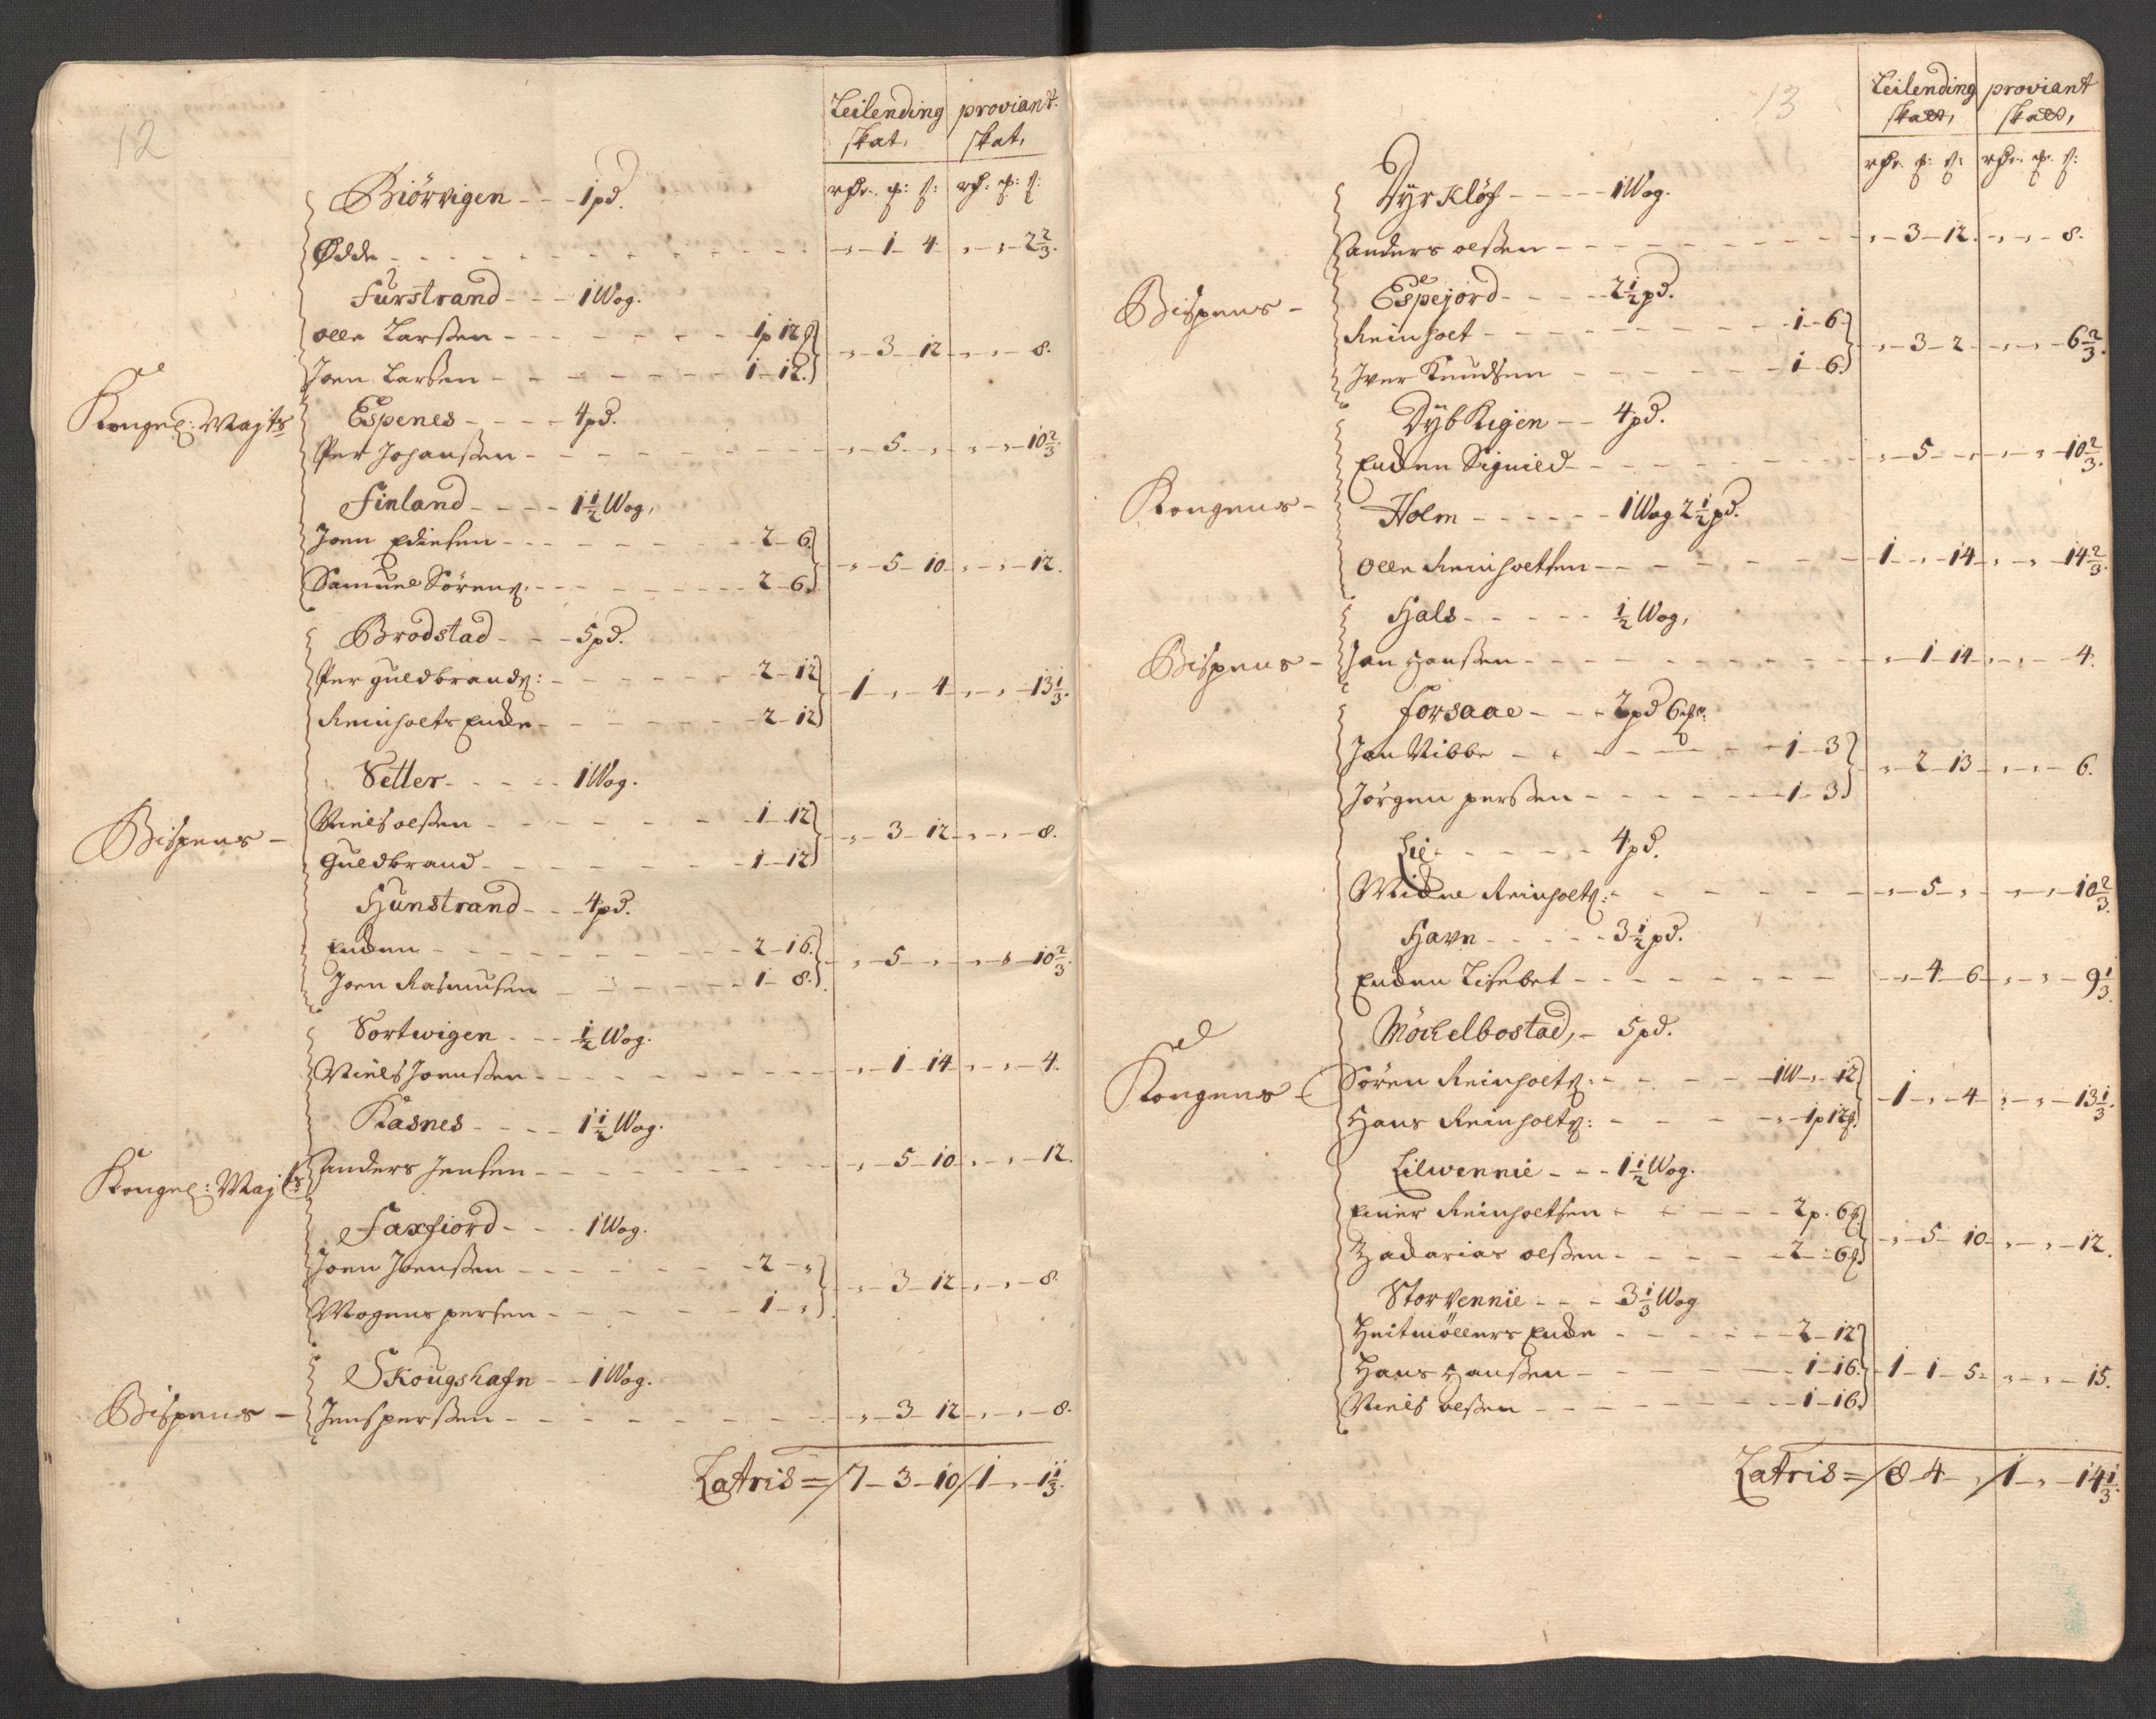 12
Leilending proviant
skat, skat,
rdr. ß: rd. ß:
Biörvigen - - - 1 pd.
Ødde - - - - „ - 1 - 4 - „ - „ - 2 2/3.
Furstrand - - - 1 Wog.
Olle Larssen - - - 1 p 12
Joen Larssen - - - 1 - 12. „ - 3 - 12 - „ - „ - 8.
Kongel: Mayts Espenes - - - - 4 pd.
Per Johanssen - - - „ - 5 - „ - „ - „ - 10 2/3
Finland - - - - 1 1/2 Wog,
Joen - - - 2 - 6.
Samuel Sörens: - - - 2 - 6. „ - 5 - 10 - „ - „ - 12.
Brodstad - - - 5 pd.
Per guldbrands: - - - 2 - 12
Reinholts Encke - - - 2 - 12 1 - „ - 4 - „ - „ - 13 1/3.
Setter - - - - - 1 Wog.
Bispens - Niels olssen - - - 1 - 12
Guldbrand - - - 1 - 12 „ - 3 - 12 - „ - „ - 8.
Hunstrand - - - 4 pd.
Encken - - - 2 - 16.
Joen Rasmussen - - - 1 - 8. „ - 5 - „ - „ - „ - 10 2/3.
Sortwigen - - - 1/2 Wog.
Niels Joenssen - - - „ - 1 - 14 - „ - „ - 4.
Kasnes - - - - 1 1/2 Wog.
Kongel: Mayts Anders Jensen - - - „ - 5 - 10 - „ - „ - 12.
Faxfiord - - - 1 Wog.
Joen Joenssen - - - 2 - „
Mogens persen - - - 1 - „ „ - 3 - 12 - „ - „ - 8.
Skougshafn - - 1 Wog.
Bispens - Jens perssen - - - „ - 3 - 12 - „ - „ - 8.
Latris = / 7 - 3 - 10 / 1 - „ - 1 1/3.
13
Leilending proviant
skatt, skatt,
rdr. ß: rdr. ß:
Dyrklöf - - - - 1 Wog.
Anders olssen - - - „ - 3 - 12. - „ - „ - 8.
Bispens - Espejord - - - - 2 1/2 pd.
Reinholt - - - 1 - 6
Iver Knudsen - - - 1 - 6. „ - 3 - 2 - „ - „ - 6 2/3.
Dybvigen - - 4 pd.
Encken Signild - - - „ - 5 - „ - „ - „ - 10 2/3.
Kongens - Holm - - - - - - 1 Wog 2 1/2 pd.
Olle Reinholtsen - - - 1 - „ - 14 - „ - „ - 14 2/3.
Hals - - - - - 1/2 Wog,
Bispens - Jan Hanssen - - - „ - 1 - 14 - „ - „ - 4.
Forsaae - - - 2 pd 6
Jan Vibbe - - - 1 - 3
Jörgen perssen - - - 1 - 3. „ - 2 - 13 - „ - „ - 6.
Lie - - - - - 4 pd.
Reinholts: - - - „ - 5 - „ - „ - „ - 10 2/3.
Havn - - - - - 3 1/2 pd.
Encken Lisebet - - - „ - 4 - 6 - „ - „ - 9 1/3.
Möckelbostad, - 5 pd.
Kongens - Sören Reinholts: - - - 1 W - „ - 12
Hans Reinholts: - - - „ - 1 p 12 1 - „ - 4 - „ - „ - 13 1/3.
Lilwennie - - - 1 1/2 Wog.
Einer Reinholtsen - - - 2 p. 6
Zacharias olssen - - - 2 - 6 „ - 5 - 10 - „ - „ - 12.
Storvennie - - - 3 1/3 Wog
Heitmöllers Encke - - - 2 - 12
Hans Hanssen - - - 1 - 16.
Niels olssen - - - 1 - 16. 1 - 1 - 5. „ - „ - 15.
Latris = / 8 - 4 - „ / 1 - „ - 14 1/3.